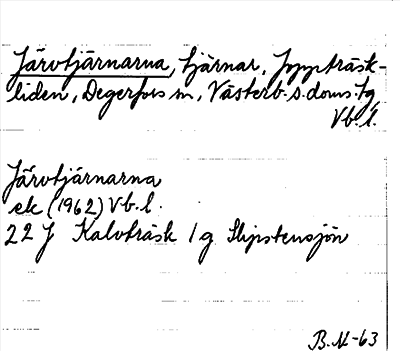 Järvtjärnarna, tjärnar, Jyppträsk-
liden, Degerfors sn, Västerb. s. doms. tg
Vb. l.
Järvtjärnarna
ek (1962) Vb. l.
22 J Kalvträsk 1 g Slipstensjön
B.N-63